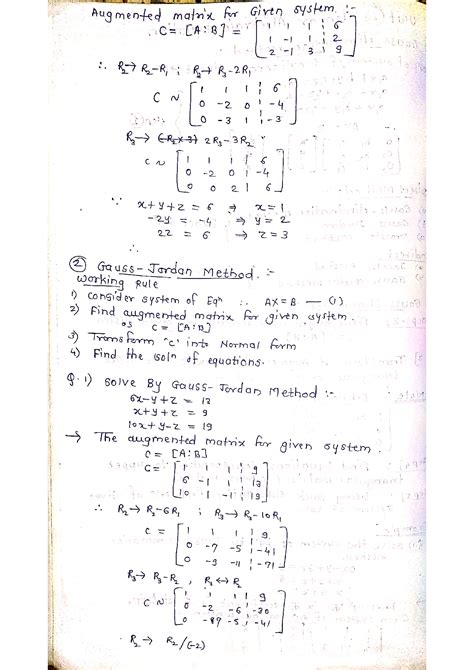 Augmented matrix for Given system :-
∴ C = [A:B] = [ 1 1 1 ¦ 6
1 -1 1 ¦ 2
2 -1 3 ¦ 9 ]
∴ R2→ R2-R1 ; R3→ R3-2R1
C ~ [ 1 1 1 ¦ 6
0 -2 0 ¦ -4
0 -3 1 ¦ -3 ]
R3→ 2R3-3R2
C ~ [ 1 1 1 ¦ 6
0 -2 0 ¦ -4
0 0 2 ¦ 6 ]
∵ x+y+z = 6 ⇒ x=1
-2y = -4 ⇒ y = 2
2z = 6 → z=3
∴
② Gauss-Jordan Method :-
Working Rule
1) Consider system of Eqn ∴ AX=B — (1)
2) Find augmented matrix for given system.
as C = [A:B]
3) Transform 'C' into Normal form
4) Find the soln of equations.
Q.1) Solve By Gauss-Jordan Method :-
6x-y+z = 13
x+y+z = 9
10x+y-z = 19
→ The augmented matrix for given system.
C = [A:B]
C = [ 1 1 1 ¦ 9
6 -1 1 ¦ 13
10 1 -1 ¦ 19 ]
∴ R2→ R2-6R1 ; R3→ R3-10R1
C = [ 1 1 1 ¦ 9
0 -7 -5 ¦ -41
0 -9 -11 ¦ -71 ]
R3→ R3-R2 , R3↔R2
C ~ [ 1 1 1 ¦ 9
0 -2 -6 ¦ -30
0 -5 ¦ -41 ]
∴ R2 → R2/(-2)